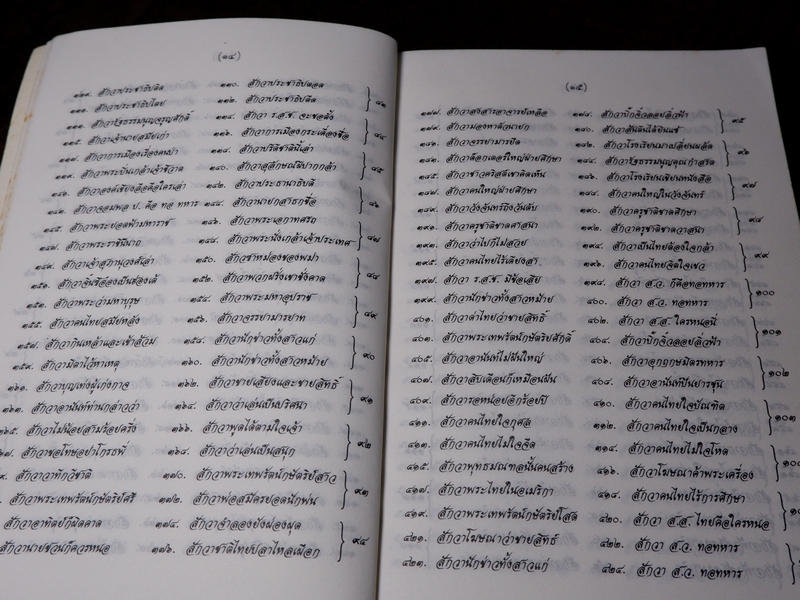 (๑๔)
๑๒๙. สักวาประชาธิปติด ๑๓๐. สักวาประชาธิปตอด
๑๓๑. สักวาประชาธิปไตย ๑๓๒. สักวาประชาธิปตีด ๘๓
สักวารัฐธรรมนูญจรูญศักดิ์ ๑๓๔. สักวา ร.ส.ช. จะขอตั้ง
สักวาเจ้านายสมัยเก่า ๑๓๖. สักวาการเมืองกระเดื่องชื่อ ๘๔
๑๓๗. สักวาการเมืองเรื่องคนบ้า ๑๓๘. สักวาปริชาตินี้เล่า
สักวาพระปิ่นเกล้าเจ้าชีวาต ๑๔๐. สักวาสุลักษณ์มีปากกล้า ๘๕
สักวาองค์เชียงลือคือใครเล่า ๑๔๒. สักวาประธานาธิบดี
สักวาจอมพล ป. คือ ทอ ทหาร ๑๔๔. สักวานายกสาธกชื่อ ๘๖
๑๔๕. สักวาพระยอดฟ้ามหาราช สักวาพระเอกาทศรถ
๑๔๗. สักวาพระราชินีนาถ ๑๔๘. สักวาพระนั่งเกล้าเจ้าประเทศ ๘๗
๑๔๙. สักวาเจ้าสุภานุวงศ์เล่า ๑๕๐. สักวาหม่องของพม่า
สักวาจิ้นซีฮ่องเป็นฮ่องเต้ ๑๕๒. สักวาพวกฝรั่งเขาช่างคาด ๘๘
๑๕๓. สักวาพระร่วงมหาบุรุษ ๑๕๔. สักวาพระมหาอุปราช
๑๕๕. สักวาคนไทยสมัยหลัง ๑๕๖. สักวาจรรยามารยาท ๘๙
๑๕๗. สักวากินเหล้าและเข้าส้วม ๑๕๘. สักวานักข่าวทั้งสาวแก่
๑๕๙. สักวามิตาไว้หาเหตุ ๑๖๐. สักวานักข่าวทั้งสาวหม้าย ๙๐
๑๖๑. สักวาบุญเพ่งผู้เก่งกาจ ๑๖๒. สักวาชายเสียงและชายสิทธิ์
๑๖๓. สักวาอานันท์ท่านกล่าวว่า ๑๖๔. สักวาว่าเล่นเป็นปริศนา ๙๑
๑๖๕. สักวาไม่น้อยสามร้อยครั้ง ๑๖๖. สักวาพูดได้ตามใจเจ้า
สักวาขอโทษอย่าโกรธพี่ ๑๖๘. สักวาว่าเล่นเป็นสนุก ๙๒
สักวาวาทีกวิชาติ ๑๗๐. สักวาพระเทพรัตน์กษัตริย์สาว
สักวาพระเทพรัตน์กษัตริย์ศรี ๑๗๒. สักวาพ่อสมัครยอดนักพ่น ๙๓
สักวาอาทิตย์ก็ผิดคาด ๑๗๔. สักวาจำลองยังผ่องผุด
สักวานายชวนก็ควรหนอ ๑๗๖. สักวาชาติไทยปลาไหลเผือก ๙๔
(๑๕)
๑๗๗. สักวาสงสารอาจารย์เหลือ ๑๗๘. สักวาบิ๊กจิ๋วลอยลิ่วฟ้า
๑๗๙. สักวามองหาตัวนายก ๑๘๐. สักวาสันตินได้ยินแซ่ ๙๕
๑๘๑. สักวาจรรยามารยึด ๑๘๒. สักวาโรงเรียนมาเปลี่ยนผลัด
๑๘๓. สักวาด็อกเตอร์ใหญ่ฝ่ายศึกษา ๑๘๔. สักวารัฐธรรมนูญคุณกำสรด ๙๖
๑๘๕. สักวาชาวคริสต์เขาคิดเห็น ๑๘๖. สักวาโรงเรียนเขียนหนังสือ
๑๘๗. สักวาคนใหญ่ฝ่ายศึกษา ๑๘๘. สักวาคนใหญ่ในวังจันทร์ ๙๗
๑๘๙. สักวาวังจันทร์ถึงวันดับ ๑๙๐. สักวาครูชาติขาดศึกษา
๑๙๑. สักวาครูชาติขาดศาสนา ๑๙๒. สักวาครูชาติขาดวาสนา ๙๘
๑๙๓. สักวาว่าไปก็ไม่สวย ๑๙๔. สักวาเป็นไทยต้องใจกล้า
๑๙๕. สักวาคนไทยไร้เดียงสา ๑๙๖. สักวาคนไทยจิตใจเขว ๙๙
๑๙๗. สักวา ร.ส.ช. มีข้อเสีย ๑๙๘. สักวา ส.ว. ก็คือทอทหาร
๑๙๙. สักวานักข่าวทั้งสาวหม้าย ๔๐๐. สักวา ส.ว. ทอทหาร ๑๐๐
๔๐๑. สักวาด่าไทยว่าชายสิทธิ์ ๔๐๒. สักวา ส.ส. ใครหนอนี่
๔๐๓. สักวาพระเทพรัตน์กษัตริย์ศักดิ์ ๔๐๔. สักวาบิ๊กจิ๋วลอยลิ่วฟ้า ๑๐๑
๔๐๕. สักวาอานันท์ไม่ฝันใหญ่ ๔๐๖. สักวาอุกฤกษมิตรทหาร
๔๐๗. สักวาสิบเดือนก็เหมือนฝัน ๔๐๘. สักวาอานันท์ปันยารชุน ๑๐๒
๔๐๙. สักวารอหน่อยอีกร้อยปี ๔๑๐. สักวาคนไทยใจบัณฑิต
๔๑๑. สักวาคนไทยใจกุศล สักวาคนไทยใจเป็นกลาง ๑๐๓
๔๑๓. สักวาคนไทยไม่ใจจืด สักวาคนไทยไม่ใจโหด
๔๑๕. สักวาพุทธมณฑลนั้นคนสร้าง ๔๑๖. สักวาโฆษณาค้าพระเครื่อง
๔๑๗. สักวาพระไทยในอเมริกา สักวาคนไทยไร้การศึกษา
๔๑๙. สักวาพระเทพรัตน์กษัตริย์โสด ๔๒๐. สักวา ส.ส. ไทยคือใครหนอ
๔๒๑. สักวาโฆษณาว่าชายสิทธิ์ ๔๒๒. สักวา ส.ว. ทอทหาร
๔๒๓. สักวานักข่าวทั้งสาวแก่ ๔๒๔. สักวา ส.ว. ทอทหาร